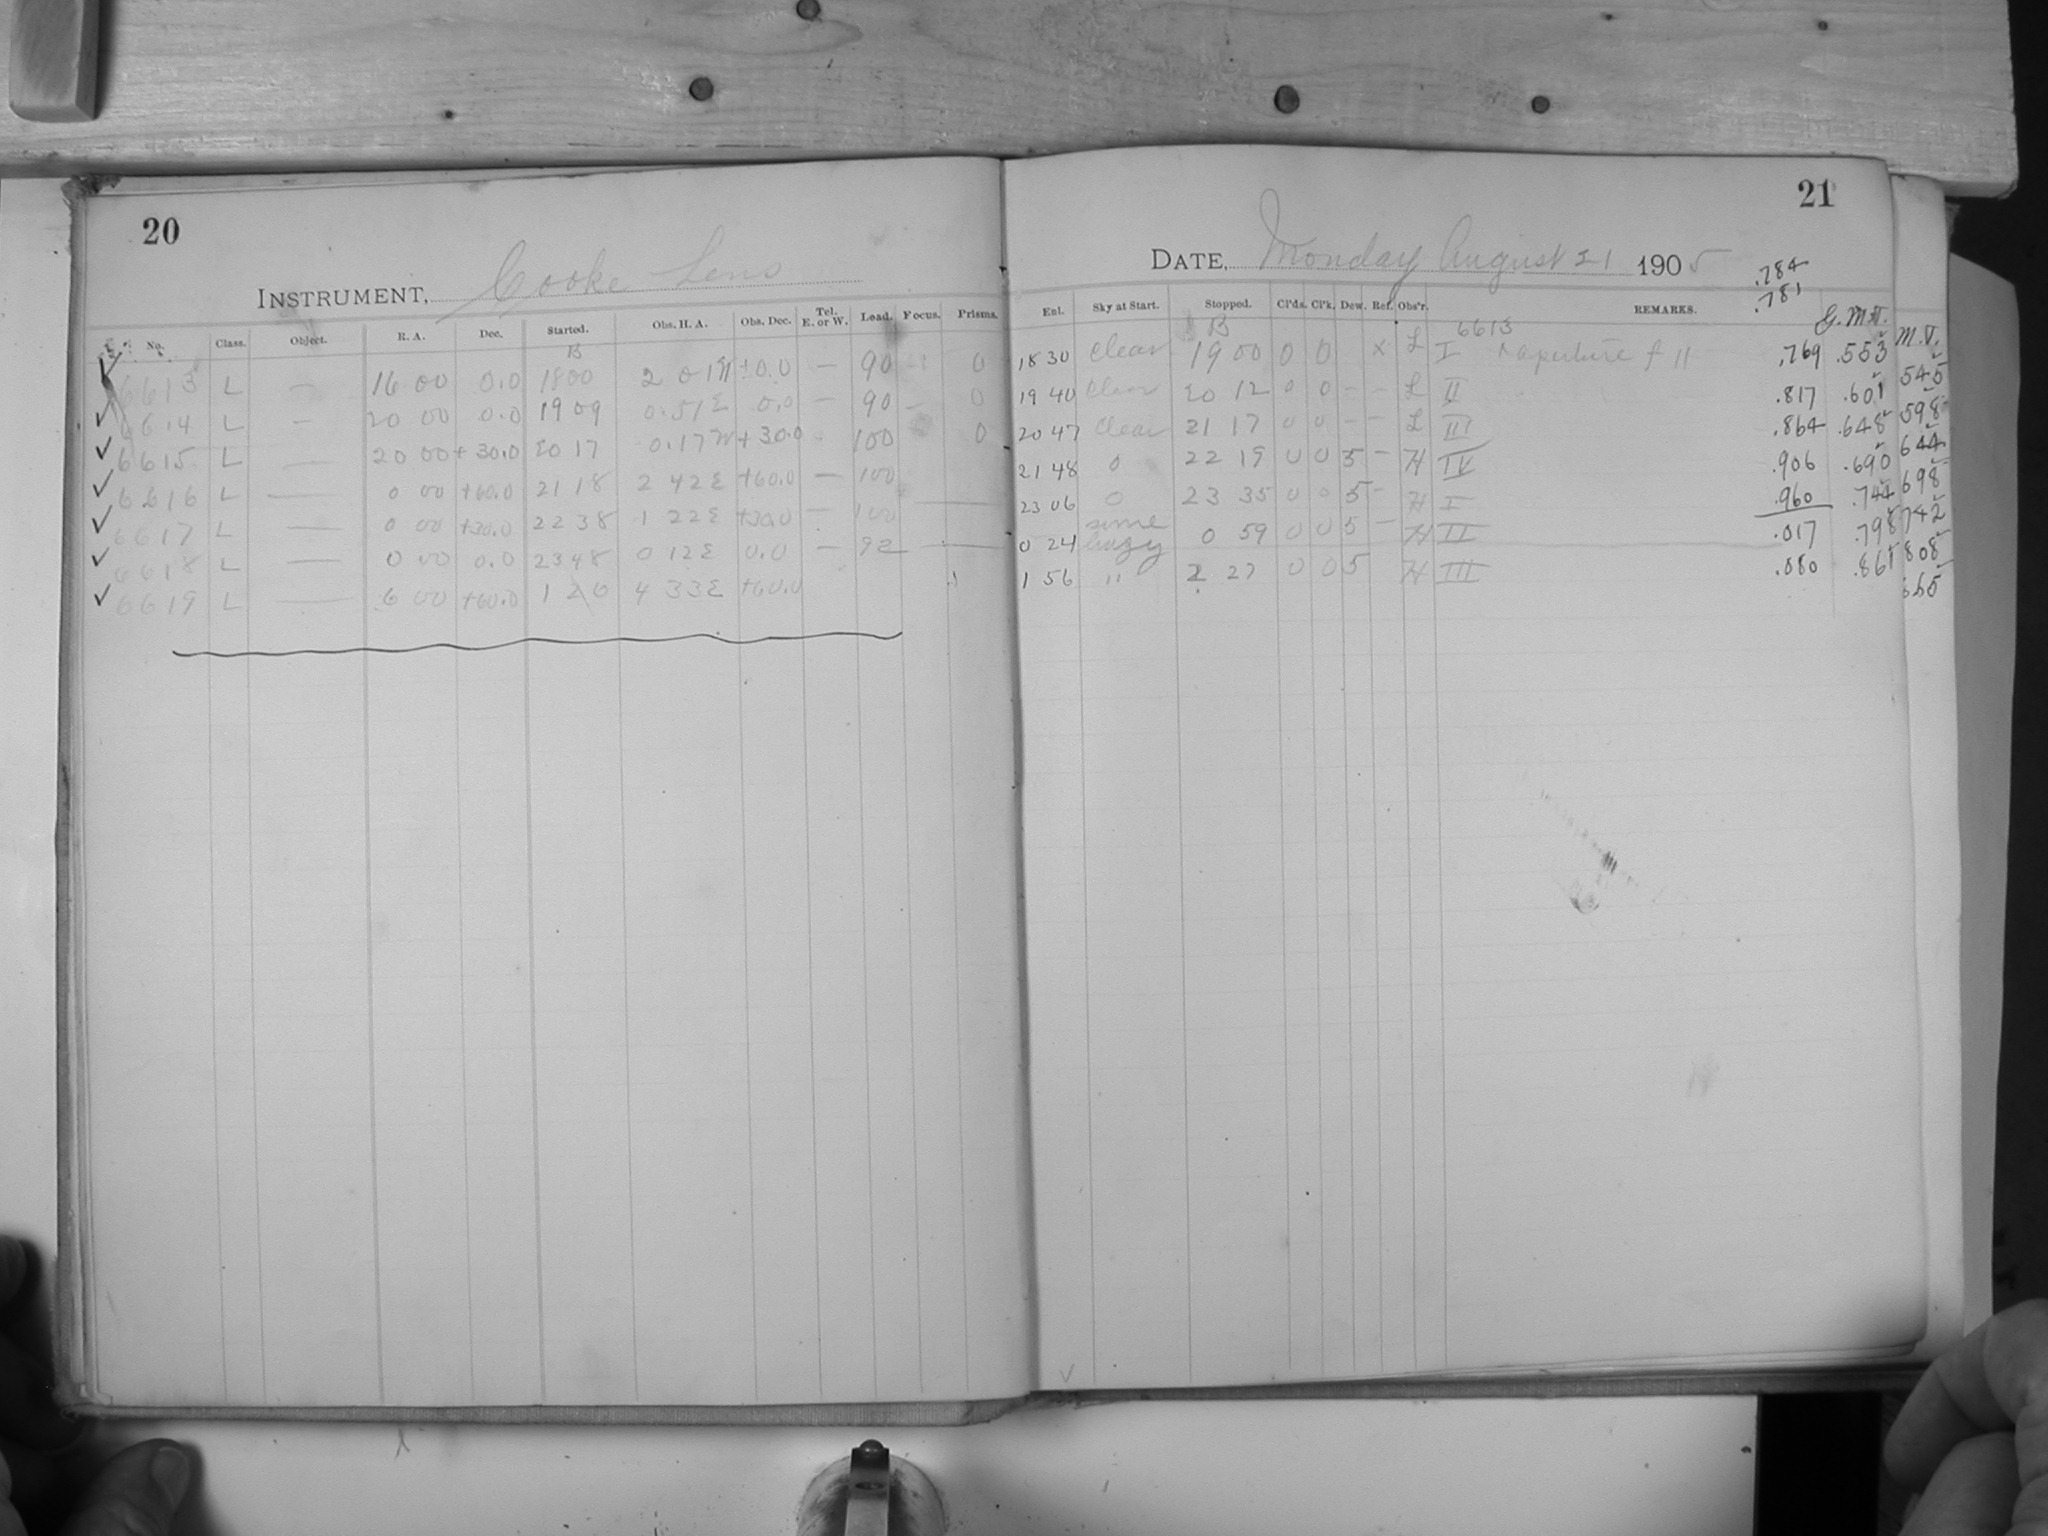 20
INSTRUMENT, Cooke Lens
No. Class. Object. R. A. Dec. Started. Obs. H. A. Obs. Dec. Tel. E. or W. Load. Focus. Prisms.
B
6613 L — 16 00 0.0 18 00 2 01 W +0.0 — 90 0
6614 L — 20 00 0.0 19 09 0.51 E 0.0 — 90 — 0
6615 L — 20 00 + 30.0 20 17 0.17 W + 30.0 100 0
6616 L — 0 00 +60.0 21 18 2 42 E +60.0 — 100
6617 L — 0 00 +30.0 22 38 1 22 E +30.0 — 100
6618 L — 0 00 0.0 23 48 0 12 E 0.0 — 92
6619 L — 6 00 +60.0 1 20 4 33 E +60.0
21
DATE, Monday August 21 1905
.784
.781
Ent. Sky at Start. Stopped. Cl'ds. Cl'k. Dew. Ref. Obs'r. REMARKS. G.M.T. M.V.
B 6613
18 30 Clear 19 00 0 0 x L I aperture f 11 .769 .553 545
19 40 Clear 20 12 0 0 – – L II .817 .601 598
20 47 Clear 21 17 0 0 – – L III .864 .648 644
21 48 0 22 19 0 0 5 – H IV .906 .690 698
23 06 0 23 35 0 0 5 – H I .960 .744 742
0 24 some hazy 0 59 0 0 5 – H II .017 .798 808
1 56 " 2 27 0 0 5 H III .080 .861